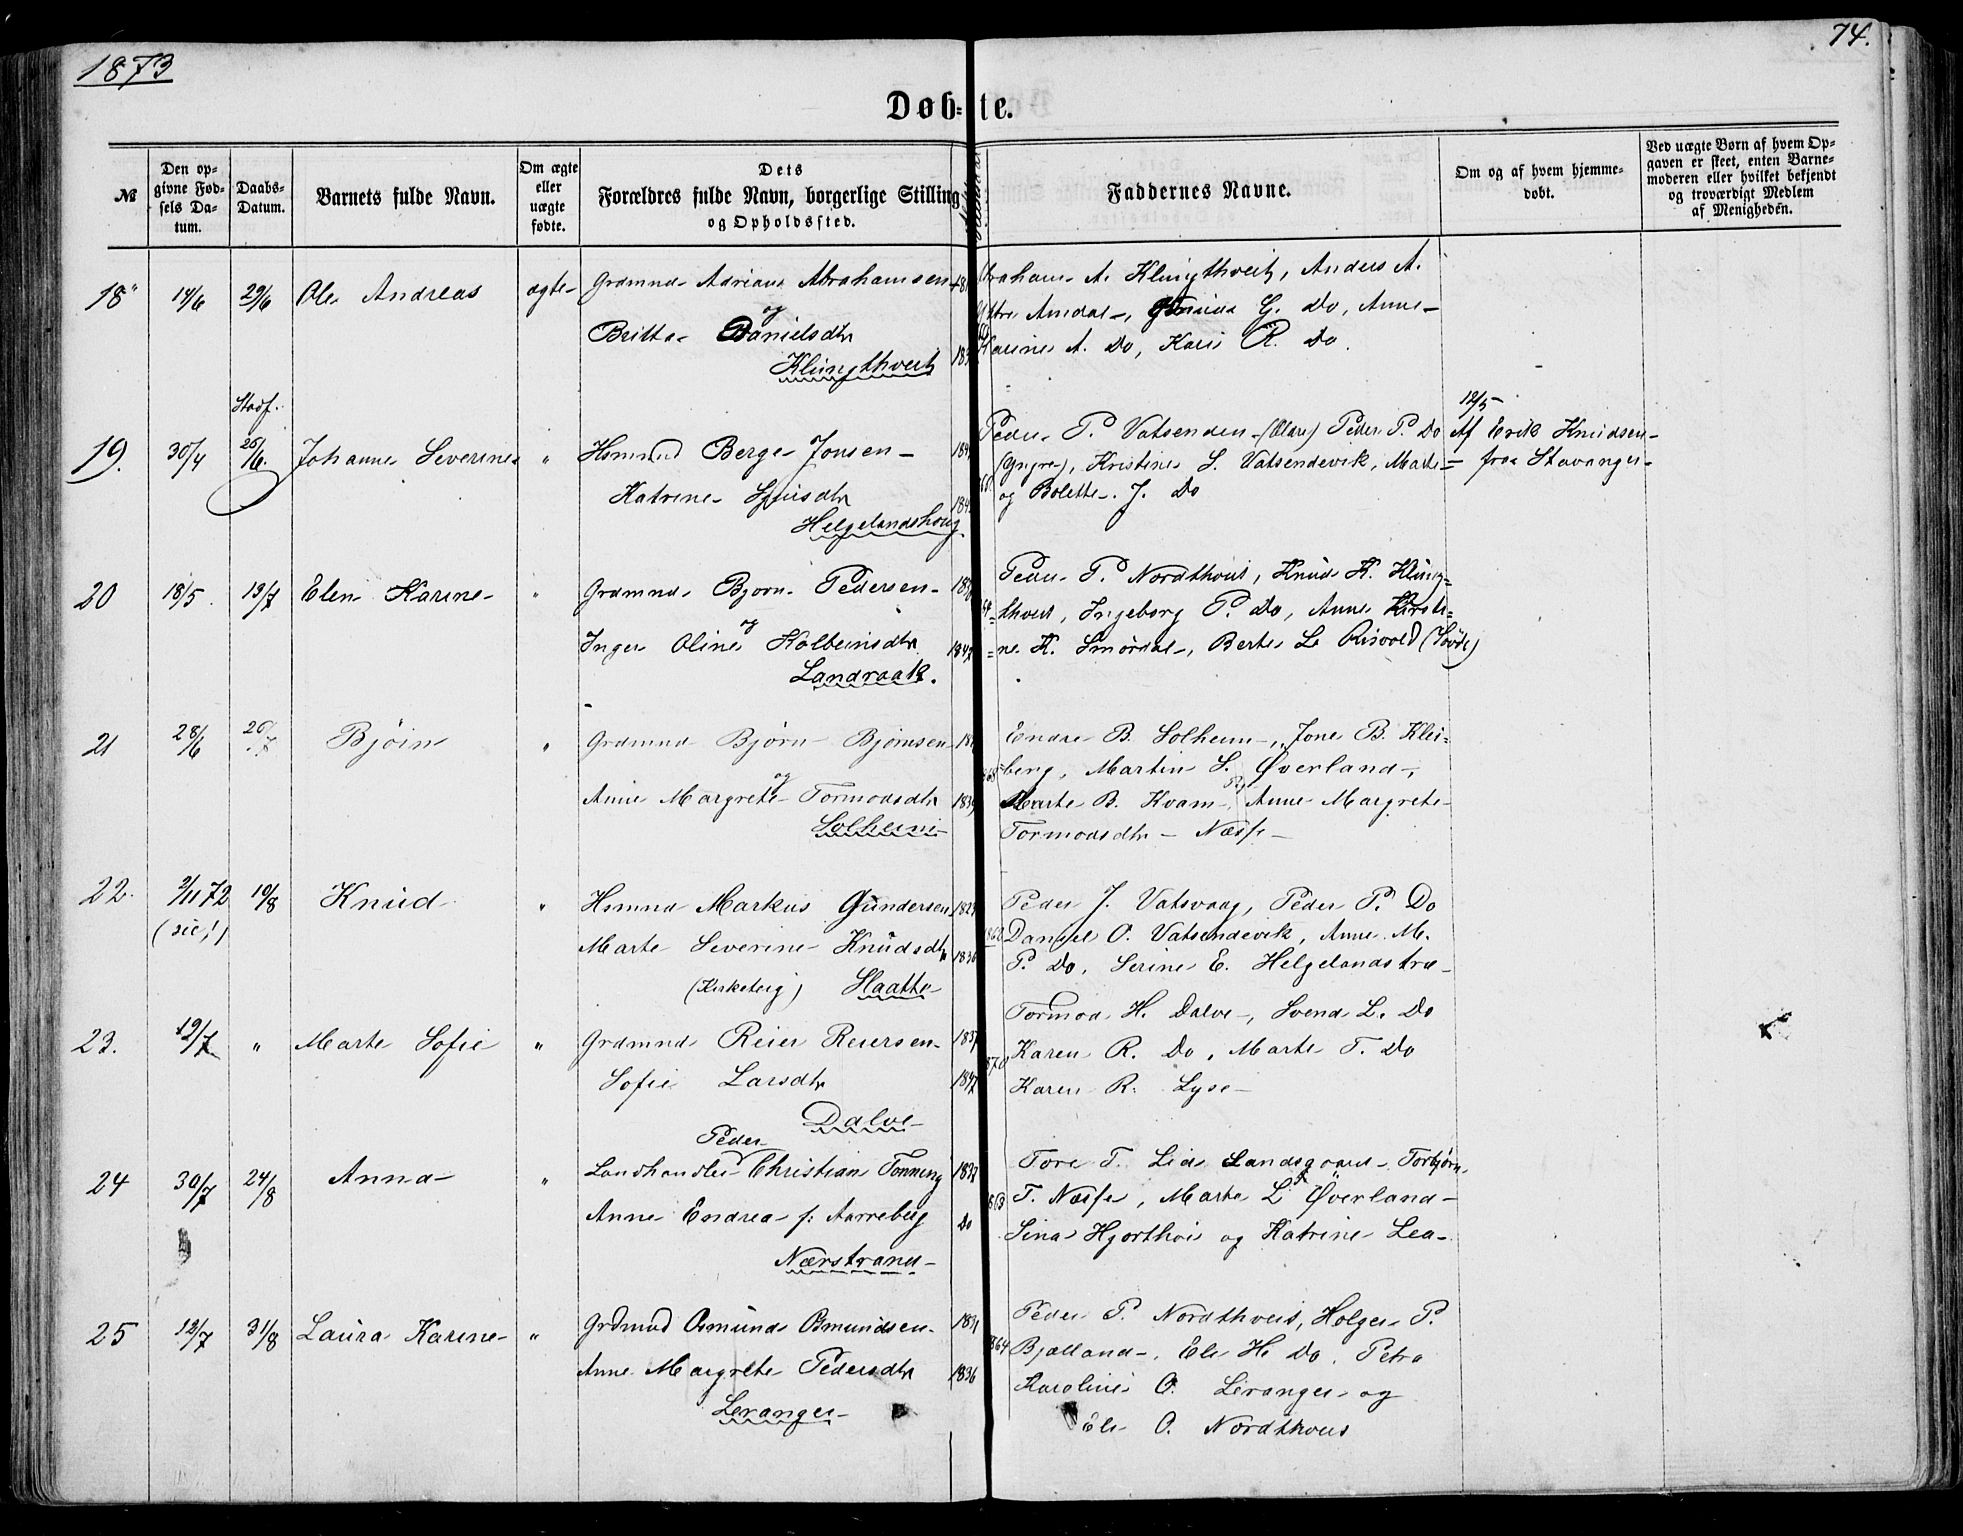 1873
74.
Døb-te.
№
Den opgivne Fødsels Datum.
Daabs-Datum.
Barnets fulde Navn.
Om ægte eller uægte fødte.
Dets Forældres fulde Navn, borgerlige Stilling og Opholdssted.
Faddernes Navne.
Om og af hvem hjemmedøbt.
Ved uægte Børn af hvem Opgaven er skeet, enten Barnemoderen eller hvilket bekjendt og troværdigt Medlem af Menigheden.
18 14/6 29/6 Ole Andreas ægte Grdmnd Adrian Abrahamsen
og
Britta Danielsdtr
Klungthveit
A. Klungthveit, Anders A.
Amdal, G. Do, Anne
A. Do, Kari R. Do.
Stadf.
19. 30/4 26/6. Johanne Severine " Hsmnd Berge Jonsen
Katrine
Helgelandshoug
Peder P. Vatsenden (Ølare) Peder P. Do
(Yngre), Kristine S. Vatsendevik, Marte
og Bolette J. Do
12/5
Af Erik Knudsen
fra Stavanger
20 18/5 13/7 Elen Karine " Grdmnd Bjørn Pedersen
og
Inger Oline Kolbeinsdtr 1842
Landraak.
Peder P. Nordthveit, Knud K. Klung-
thveit, Ingeborg P. Do, Anne Kirsti-
=ne K. Smørdal, Berte L Risvold
21 28/6 20/7 Bjørn " Grdmnd Bjørn Bjørnsen
og
Anne Margrete Tormodsdtr 1839
Solheim
Endre B. Solheim, Jone B. Klei-
berg, Marten S. Øverland,
Marte B. Kvam, Anne Margrete
Tormodsdtr Næsse
22. 2/11 72 10/8 Knud " Hsmnd Markus Gundersen
(sic!)
Marte Severine Knudsdtr 1836
(Kirketeig) Slaatte
Peder J. Vatsvaag, Peder P. Do
Daniel O. Vatsendevik, Anne M.
P. Do, Serine E. Helgelandstræ
23. 12/7 " Marte Sofie " Grdmnd Reier Reiersen 1837
Sofie Larsdtr 1847
Dalve
Tormod H. Dalve, Svend L. Do
Karen R. Do, Marte T. Do
Karen R. Lyse
Peder
24 30/7 24/8 Anna " Landhandler Christian Tonning 1832
Anne Endrea f: Aarreberg Do
Nærstrand
Tore T. Lide Landsgaard Torbjørn
T. Næsse, Marte L Øverland
Sina Hjorthøi og Katrine Lea
25 12/7 31/8 Laura Karine " Grdmnd Osmund Osmundsen
Anne Margrete Pedersdtr 1836
Leranger
Peder P. Nordthveit, Holger P.
Bjelland, Eli H. Do, Petra
Karoline O. Leranger og
Eli O. Nordthveit